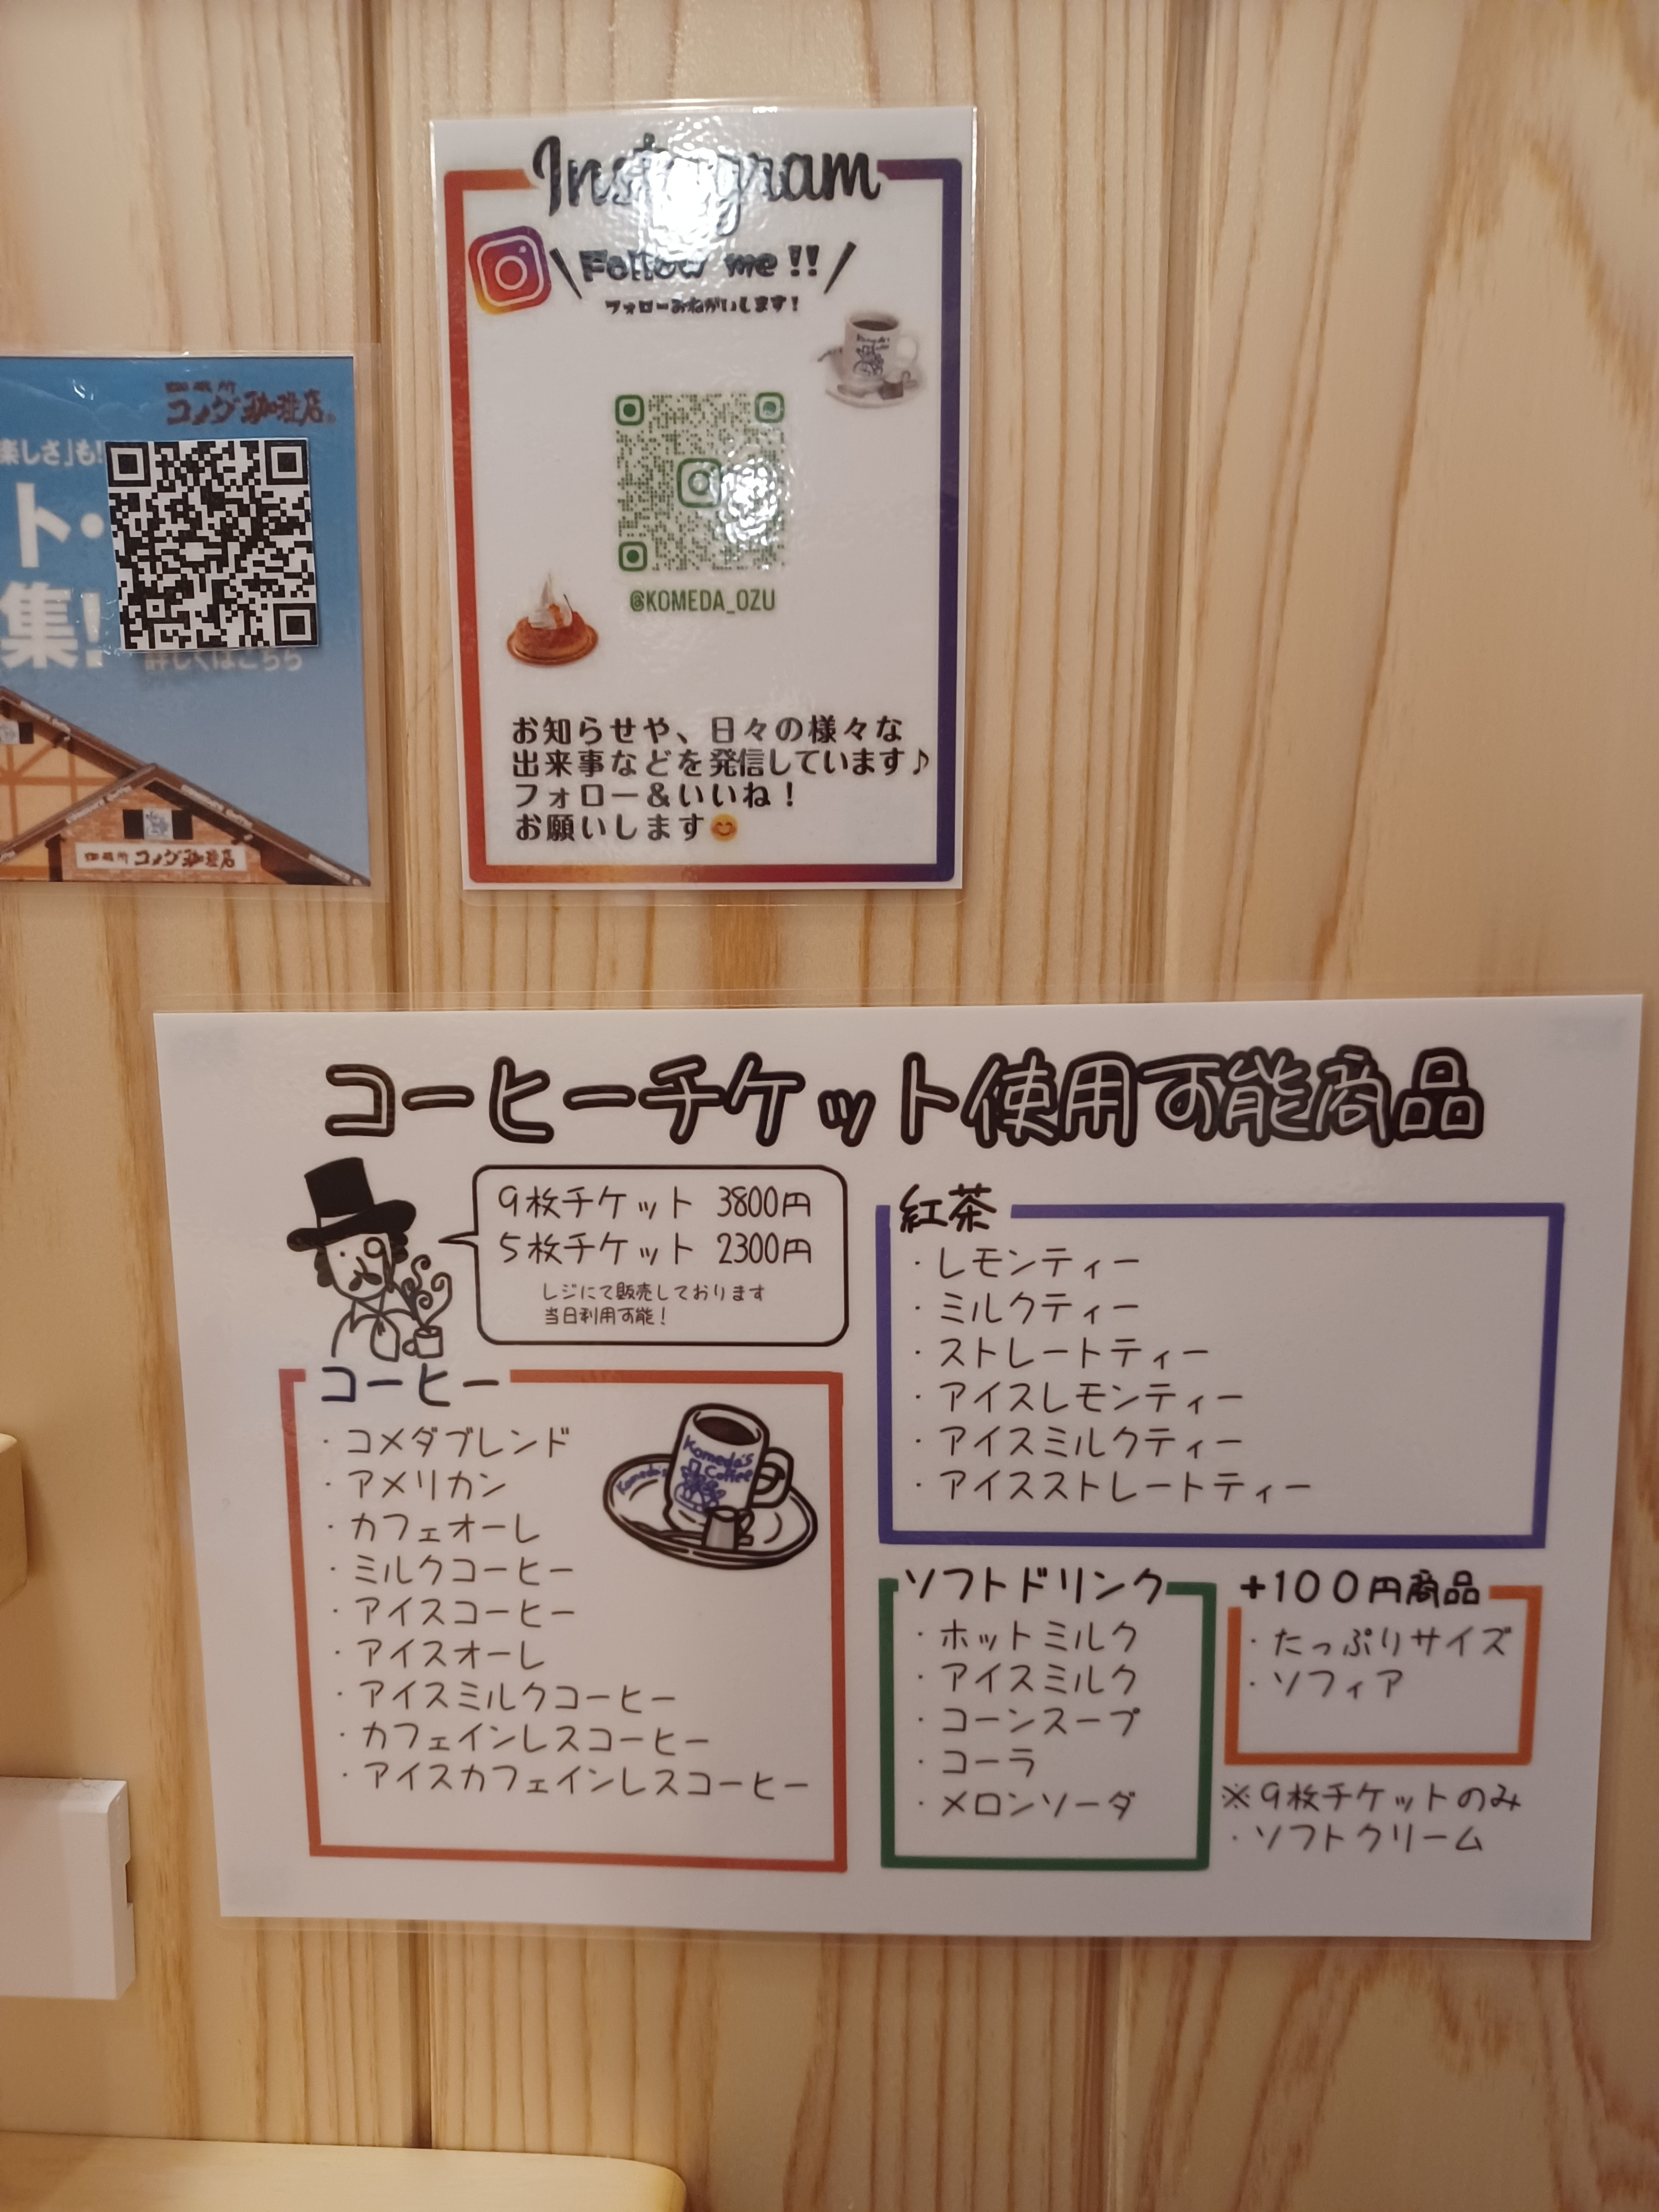 珈琲所
コメダ珈琲店
楽しさ」も!
ト・
集!
詳しくはこちら
珈琲所 コメダ珈琲店
Instagram
Follow me !!
フォローおねがいします!
@KOMEDA_OZU
お知らせや、日々の様々な
出来事などを発信しています♪
フォロー&いいね!
お願いします😊
コーヒーチケット使用可能商品
9枚チケット 3800円
5枚チケット 2300円
レジにて販売しております
当日利用可能!
コーヒー
・コメダブレンド
・アメリカン
・カフェオーレ
・ミルクコーヒー
・アイスコーヒー
・アイスオーレ
・アイスミルクコーヒー
・カフェインレスコーヒー
・アイスカフェインレスコーヒー
Komeda's
Coffee
Komeda's
紅茶
・レモンティー
・ミルクティー
・ストレートティー
・アイスレモンティー
・アイスミルクティー
・アイスストレートティー
ソフトドリンク
・ホットミルク
・アイスミルク
・コーンスープ
・コーラ
・メロンソーダ
+100円商品
・たっぷりサイズ
・ソフィア
※9枚チケットのみ
・ソフトクリーム